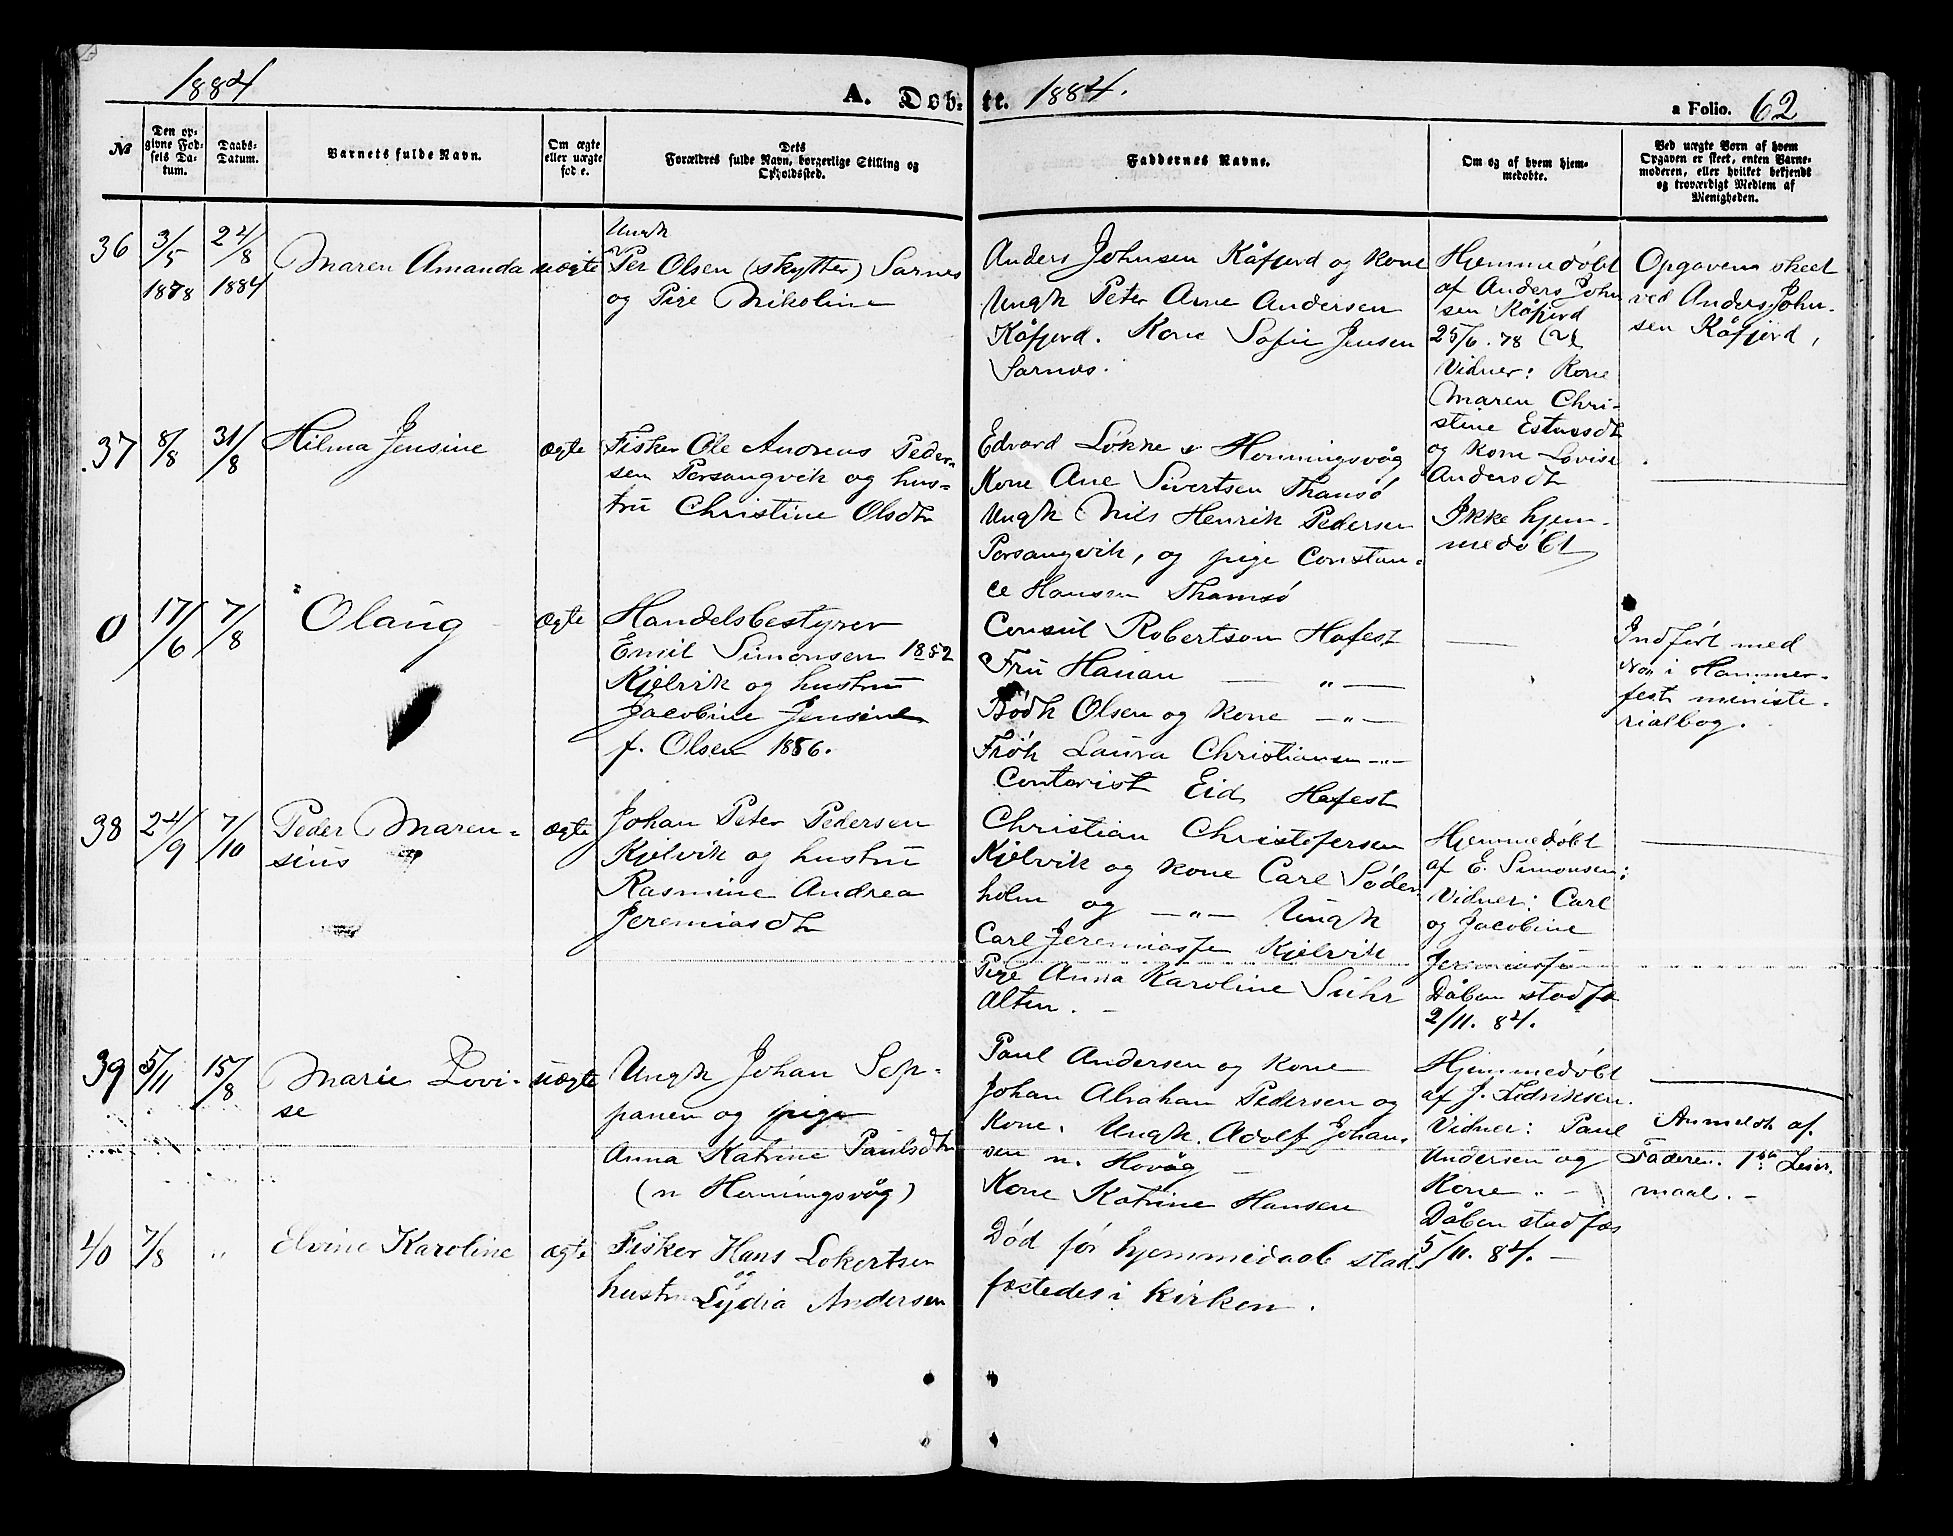 1884
A. Døb-
te.
1884.
a Folio. 62
№
Den op-
givne Fød-
sels Da-
tum.
Daabs-
Datum.
Barnets fulde Navn.
Om ægte
eller uægte
fød e.
Dets
Forældres fulde Navn, borgerlige Stilling og
Opholdssted.
Faddernes Navne.
Om og af hvem hjem-
medøbte.
Ved uægte Børn af hvem
Opgaven er skeet, enten Barne-
moderen, eller hvilket bekjendt
og troværdigt Medlem af
Menigheden.
36
3/5
1878
24/8
1884
Maren Amanda
uægte
Ungk
Per Olsen (skytter) Sarnes
og Pige Nikoline
Anders Johnsen Kåfjord og kone
Ungk Peter Arne Andersen
Kåfjord. Kone Sofie Jensen
Sarnes.
Hjemmedøbt
af Anders John
sen Kåfjord
25/6. 78
Vidner: Kone
Maren Chri-
stine
og Kone Lovise
Andersdt
Opgaven skeet
ved Anders John-
sen Kåfjord,
37
8/8
31/8
Hilma Jensine
ægte
Fisker Ole Andreas Peder-
sen Porsangvik og hus-
tru Christine Olsdtr
Edvard Løkke Honningsvåg
Kone Ane Sivertsen Thamsø
Ungk Nils Henrik Pedersen
Porsangvik, og pige Constan-
ce Hansen Thamsø
Ikke hjem-
medøbt
0
17/6
7/8
Olaug
ægte
Handelsbestyrer
Emil Simonsen 1852
Kjelvik og hustru
Jacobine Jensine
f. Olsen 1856.
Consul Robertson Hafest
Fru Hauan — „ —
Bødk Olsen og kone — „ —
Frøk Laura Christiansen — „ —
Contorist Eid Hafest
—
Indført med
No i Hammer-
fest ministe-
rialbog.
38
24/9
7/10
Peder Maren-
sius
ægte
Johan Peter Pedersen
Kjelvik og hustru
Rasmine Andrea
Jeremiasdtr
Christian Christofersen
Kjelvik og kone Carl Søder
holm og — „ — Ungk
Carl Jeremiass Kjelvik
Pige Anna Karoline Suhr
Alten.
Hjemmedøbt
af E. Simonsen:
Vidner: Carl
og Jacobine
Jeremiass
Dåben stadf
2/11. 84.
39
5/11
15/8
Marie Lovi-
se
uægte
Ungk Johan Sep-
panen og pige
Anna Katrine Paulsdtr
(n Honningsvåg)
Paul Andersen og kone
Johan Abraham Pedersen og
Kone. Ungk. Adolf Johan
sen n. Hovåg
Kone Katrine Hansen
Hjemmedøbt
af J. Fedriksen.
Vidner: Paul
Andersen og
Kone „ —
Dåben stadfæs
5/11. 84. —
Anmeldt af
Faderen. 1ste Leier-
maal. —
40
7/8
„
Elvine Karoline
ægte
Fisker Hans Lokertsen
og
hustru Lydia Andersen
Død før hjemmedaab stad
fæstedes i kirken.